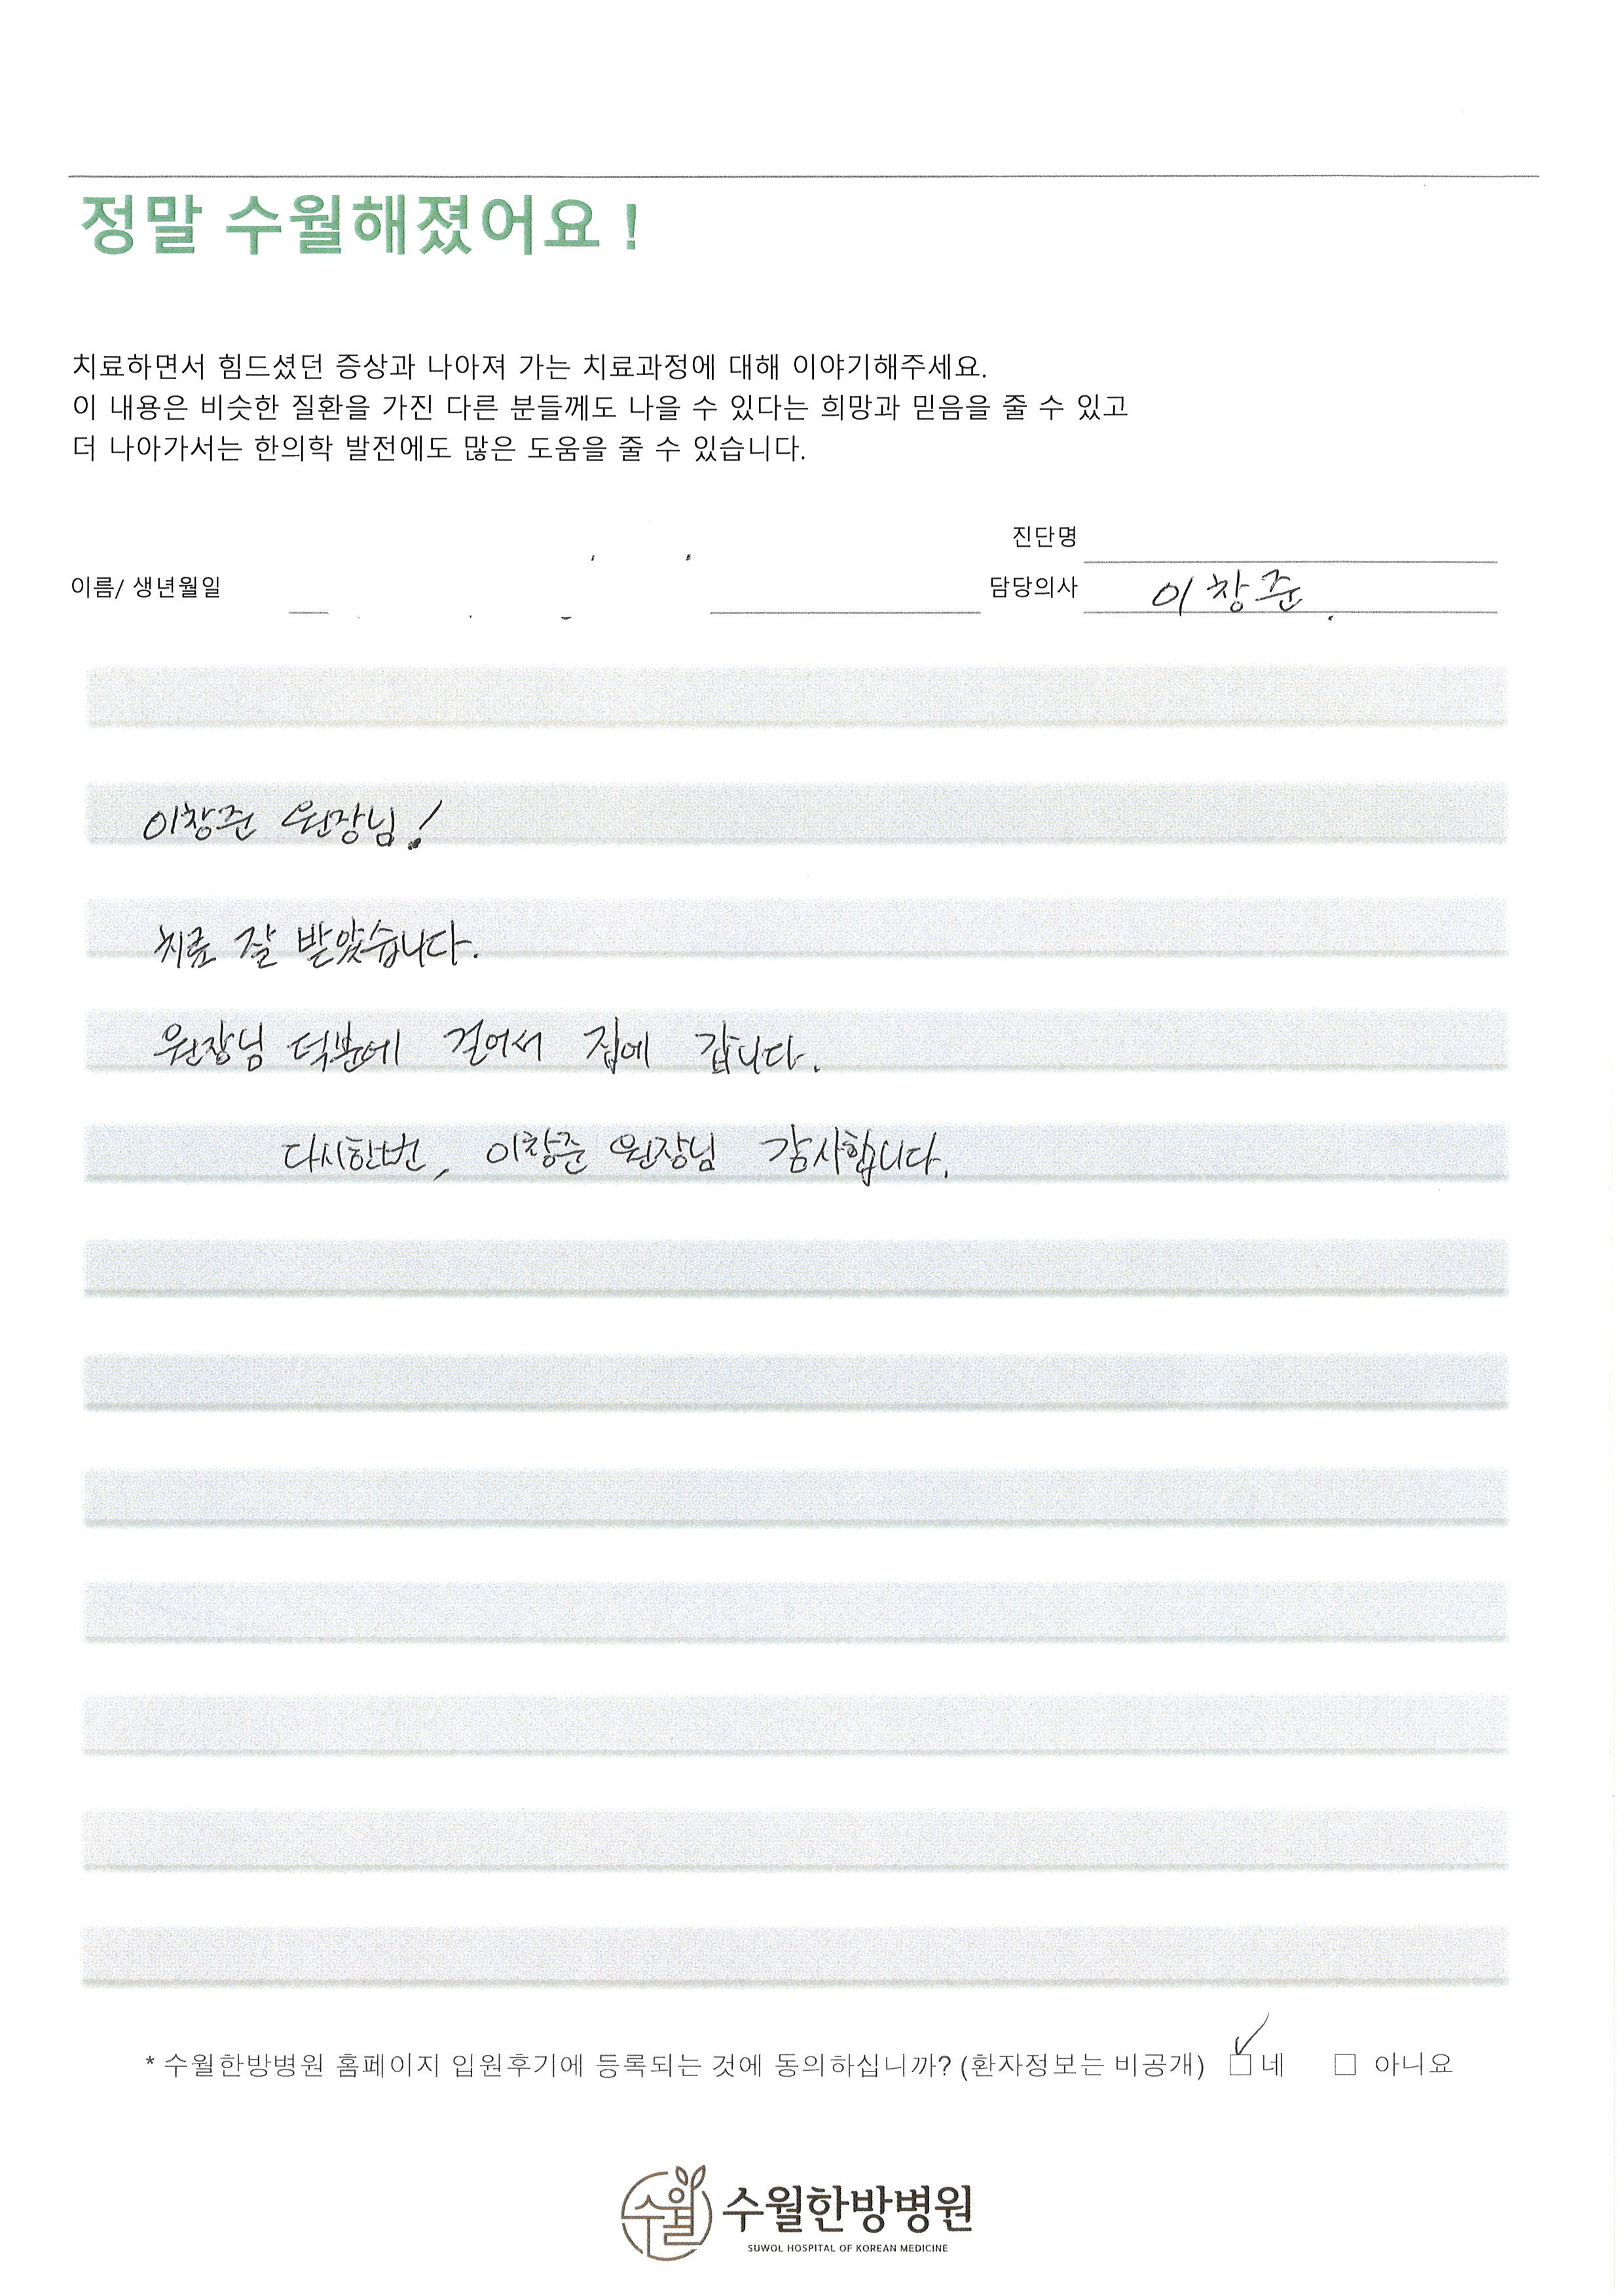 정말 수월해졌어요 !
치료하면서 힘드셨던 증상과 나아져 가는 치료과정에 대해 이야기해주세요.
이 내용은 비슷한 질환을 가진 다른 분들께도 나을 수 있다는 희망과 믿음을 줄 수 있고
더 나아가서는 한의학 발전에도 많은 도움을 줄 수 있습니다.
진단명
이름/ 생년월일
담당의사 이창준
이창준 원장님!
치료 잘 받았습니다.
원장님 덕분에 걸어서 집에 갑니다.
다시한번, 이창준 원장님 감사합니다.
* 수월한방병원 홈페이지 입원후기에 등록되는 것에 동의하십니까? (환자정보는 비공개) ☑ 네 □ 아니요
수월 수월한방병원
SUWOL HOSPITAL OF KOREAN MEDICINE